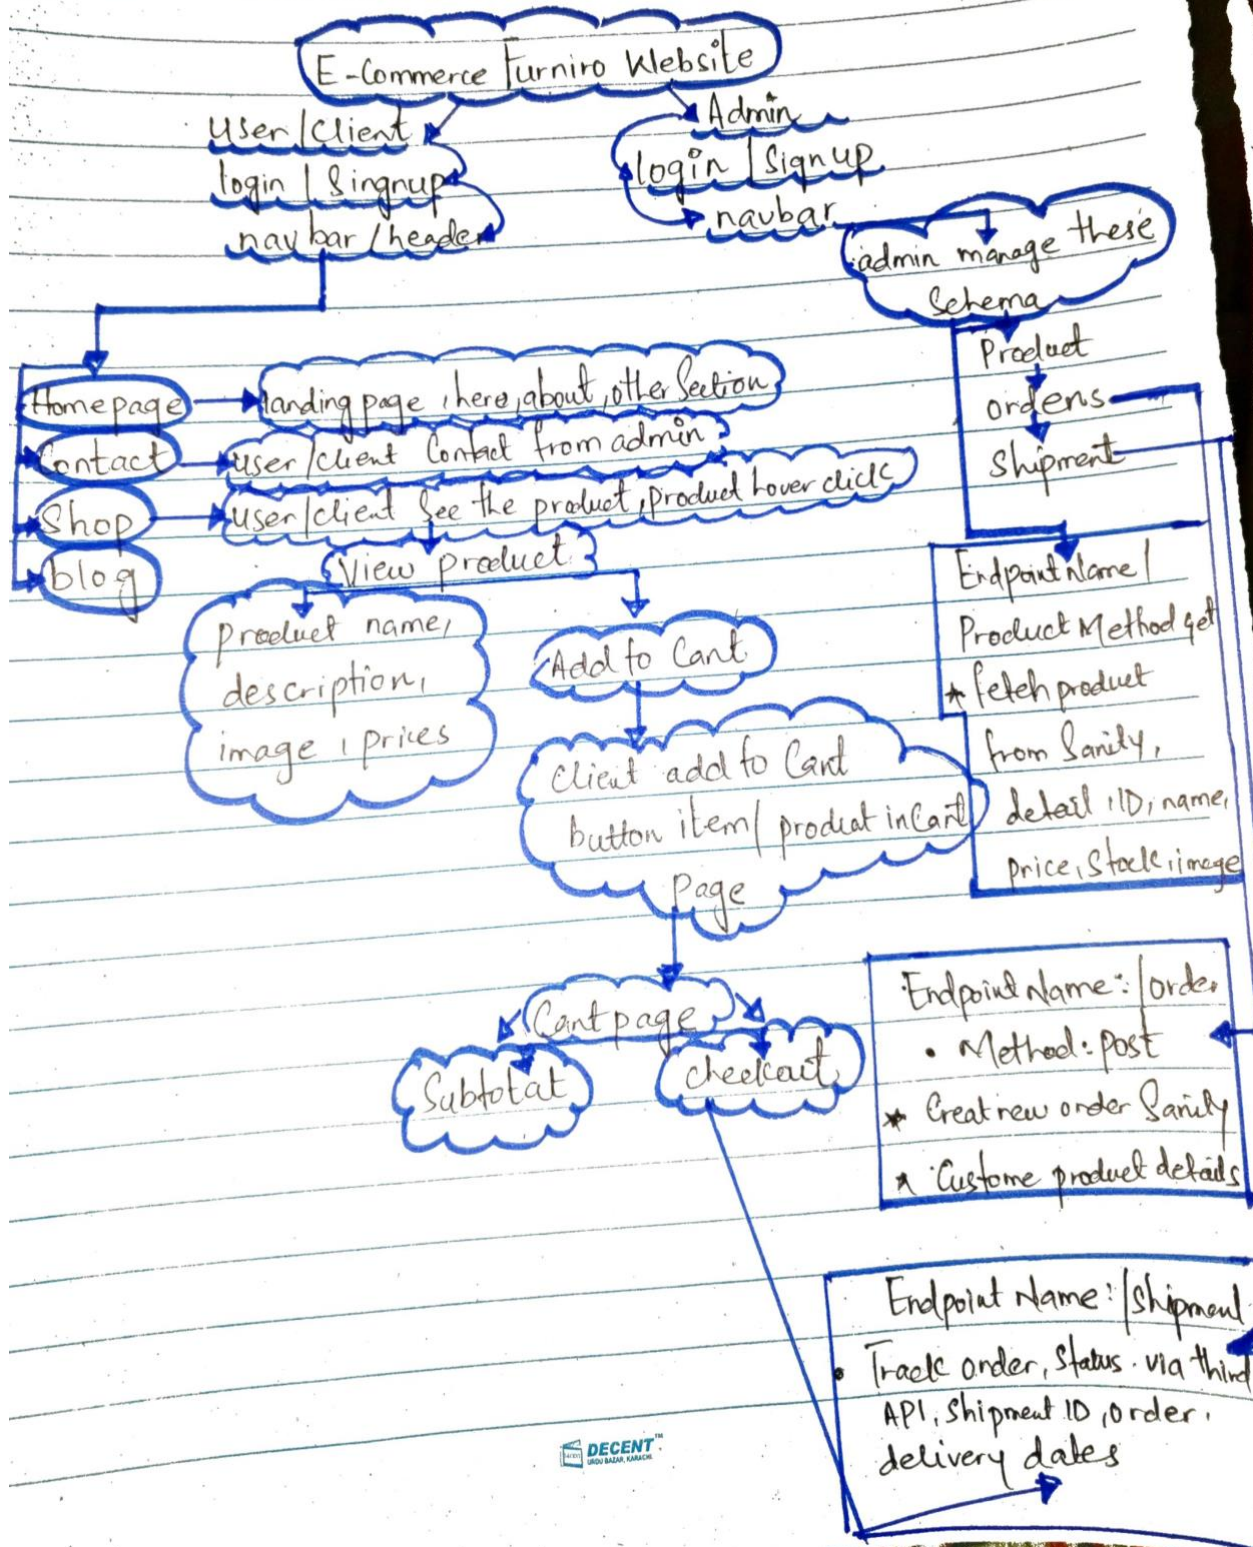 E-Commerce Furniro Website
User/Client
login / Singnup
nav bar / header
Admin
login / Signup
navbar
admin manage these
Schema
Product
orders
Shipment
Homepage
landing page, hero, about, other Section
Contact
user/client Contact from admin
Shop
user/client See the product, product hover click
blog
View product
product name,
description,
image, prices
Add to Cart
Client add to Cart
button item/ product in Cart
Page
Cart page
Subtotal
Checkout
Endpoint Name /
Product Method get
* fetch product
from Sanity,
detail, ID, name,
price, Stock, image
Endpoint Name: /order
• Method: post
* Creat new order Sanity
* Custome product details
Endpoint Name: /Shipment
• Track order, Status. via third
API, Shipment ID, order,
delivery dates
DECENT™
URDU BAZAR, KARACHI.